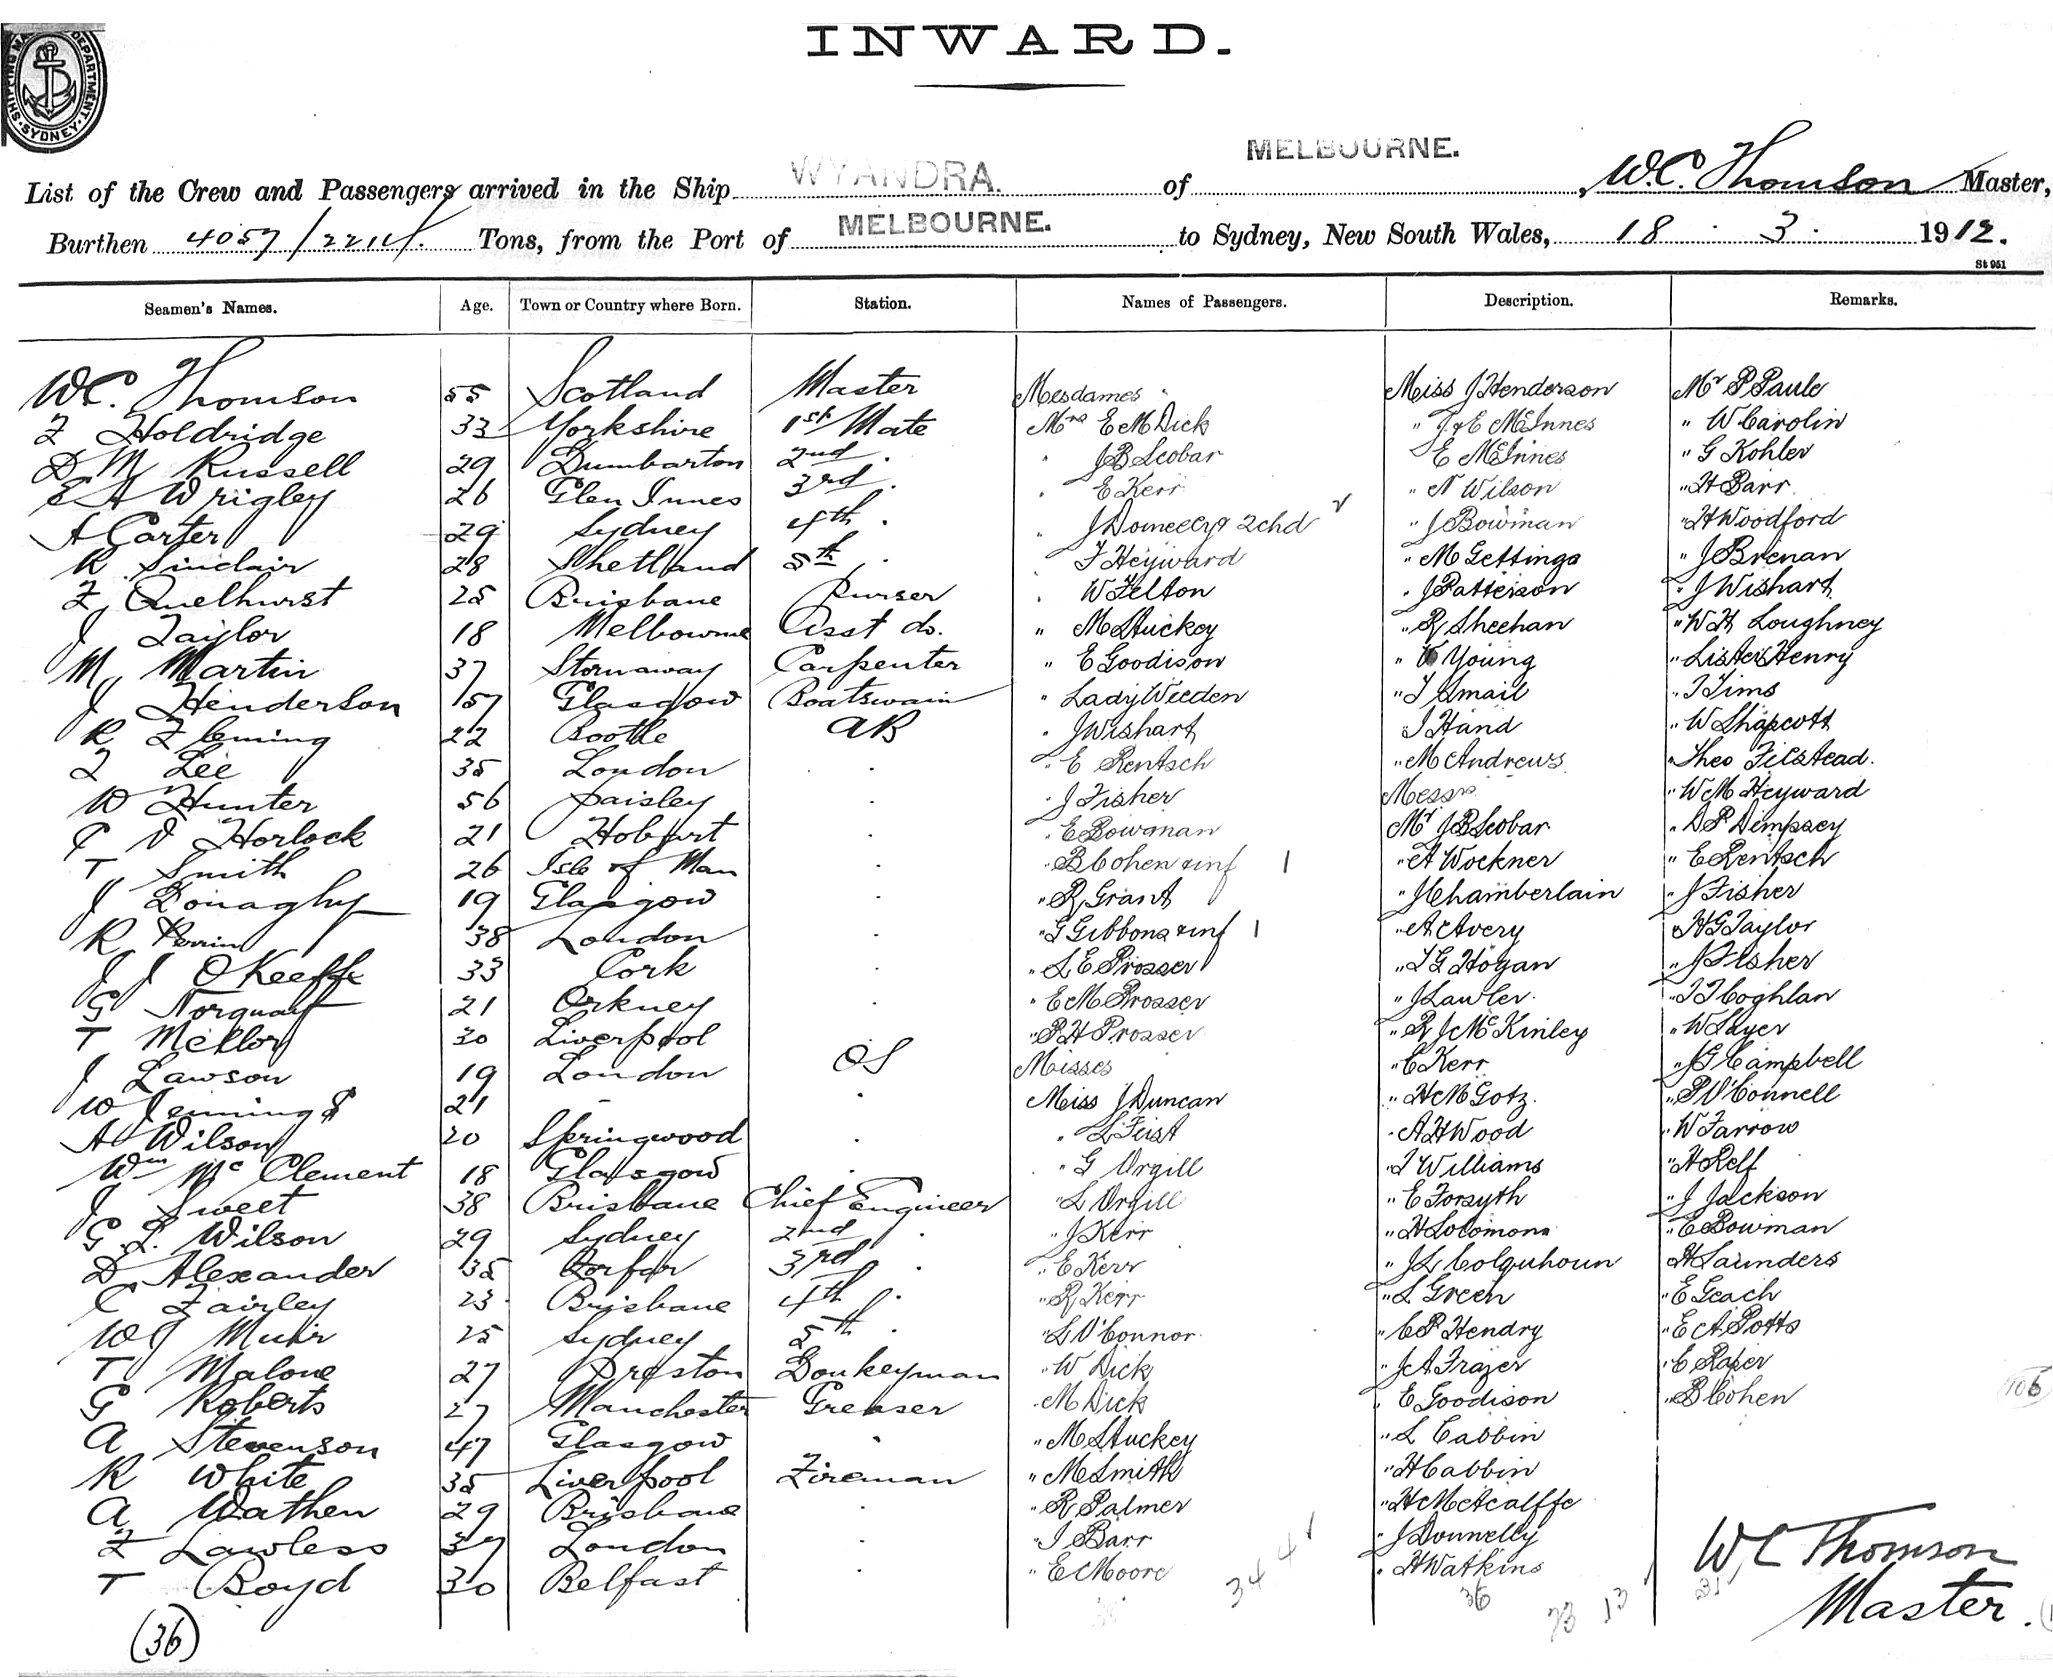 INWARD.
SHIPPING MA DEPARTMENT. SYDNEY.
MELBOURNE.
List of the Crew and Passengers arrived in the Ship WYANDRA. of , W.C. Thomson Master,
Burthen 4057/2214. Tons, from the Port of MELBOURNE. to Sydney, New South Wales, 18 . 3 . 1912.
St 951
Seamen's Names. Age. Town or Country where Born. Station. Names of Passengers. Description. Remarks.
W.C. Thomson 55 Scotland Master Mesdames Miss J Henderson Mr P Paule
F Holdridge 33 Yorkshire 1st Mate Mrs E M Dick " J & E McInnes " W Carolin
D M Russell 29 Dumbarton 2nd . " J B Scobar E McInnes " G Kohler
E A Wrigley 26 Glen Innes 3rd . " E Kerr " N Wilson " H Barr
A Carter 29 Sydney 4th . " J Donnelly & 2chd " J Bowman " H Woodford
R Sinclair 28 Shetland 5th . F Heyward " M Gettings " J Brenan
F Quelhurst 25 Brisbane Purser " W Felton " J Patterson " J Wishart
J Taylor 18 Melbourne Asst do. " M Stuckey " R Sheehan " W H Loughney
M Martin 37 Stornaway Carpenter " E Goodison " Young " Lister Henry
J Henderson 57 Glasgow Boatswain " Lady Weeden " T Smail " T Tims
R Fleming 22 Bootle AB " J Wishart I Hand " W Shapcott
F Lee 35 London . " E Rentsch " M Andrews " Theo Filstead.
W Hunter 56 Paisley . " J Fisher Messrs " W M Heyward
C V Horlock 21 Hobart . " E Bowman Mr J B Scobar " D P Dempsey
T Smith 26 Isle of Man . " B Cohen & inf 1 " A Wockner " E Rentsch
J Donaghy 19 Glasgow . " R Grant " J Chamberlain " J Fisher
R Perrin 38 London . " G Gibbons & inf 1 " A Avery " H G Taylor
J J O'Keeffe 33 Cork . " L E Prosser " T G Hogan " J Fisher
G Norquay 21 Orkney . " E M Prosser " J Lawler " T F Coghlan
T Mellor 30 Liverpool " P H Prosser " R J McKinley " W Sayer
J Lawson 19 London OS Misses " C Kerr " J G Campbell
W Jennings 21 - . Miss J Duncan " H M Gotz. " P O'Connell
A Wilson 20 Springwood . " L Feist " A H Wood " W Farrow
Wm McClement 18 Glasgow . " G Orgill " J Williams " H Relf
J Sweet 38 Brisbane Chief Engineer " L Orgill " E Forsyth " J Jackson
G. L. Wilson 29 Sydney 2nd . " J Kerr " H Solomons " E Bowman
D Alexander 35 Forfar 3rd . " E Kerr " J L Colquhoun " H Saunders
C Fairley 23 Brisbane 4th . " R Kerr " L Green " E Geach
W J Muir 25 Sydney 5th . " L O'Connor " C P Hendry " E A Potts
T Malone 27 Preston Donkeyman " W Dick " J A Frazer " E Raper
G Roberts 27 Manchester Greaser " M Dick " E Goodison " B Cohen
A Stevenson 47 Glasgow " " M Stuckey " L Cabbin
R White 35 Liverpool Fireman " M Smith " H Cabbin
A Wathen 29 Brisbane . " R Palmer " H Metcalffe
F Lawless 37 London . " I Barr " J Donnelly
T Boyd 30 Belfast . " E Moore " H Watkins
34 4 36 73 13 31
W C Thomson
Master.
(36)